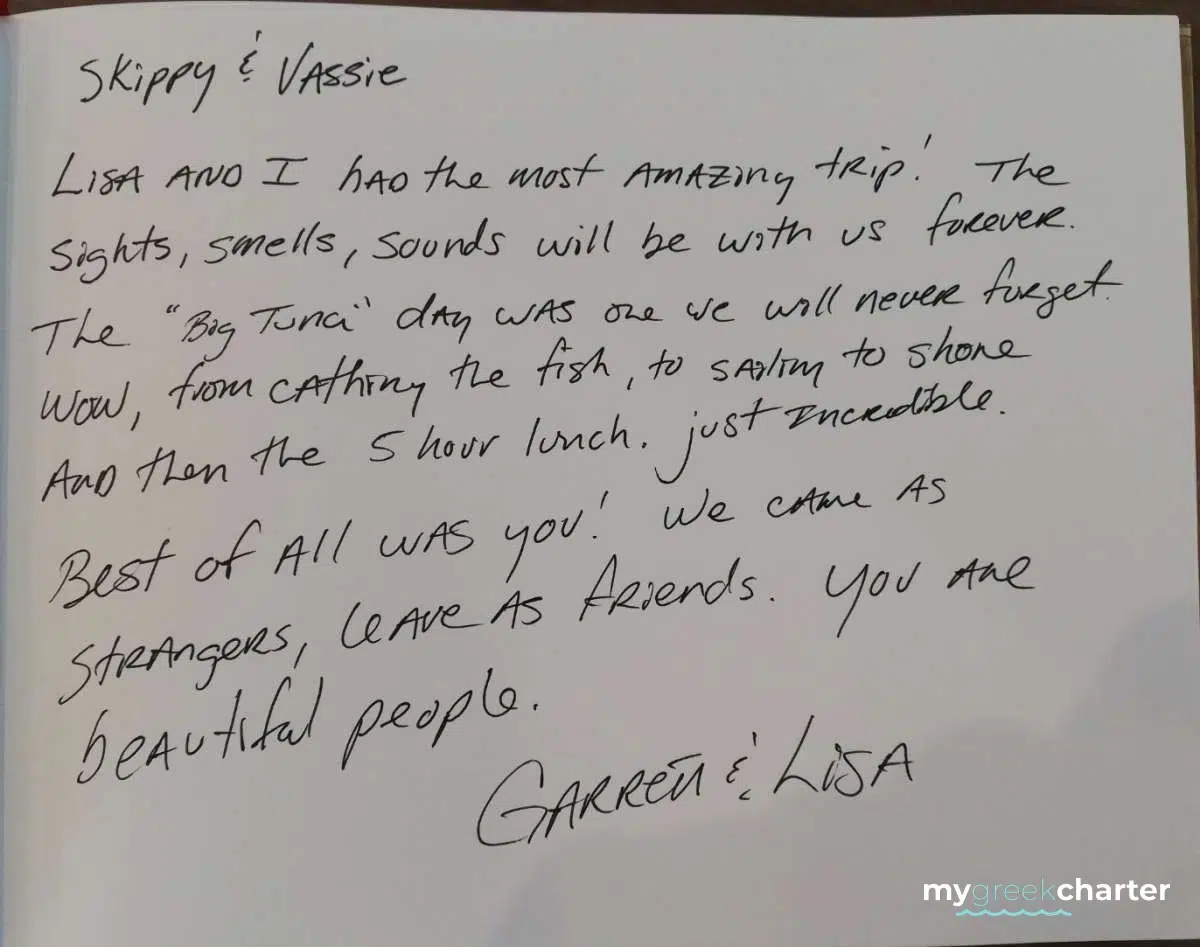 Skippy & Vassie
Lisa and I had the most amazing trip! The
sights, smells, sounds will be with us forever.
The "Big Tuna" day was one we will never forget.
Wow, from cathing the fish, to sailing to shore
and then the 5 hour lunch. just Incredible.
Best of all was you! We came as
strangers, leave as friends. You are
beautiful people.
Garrett & Lisa
mygreekcharter